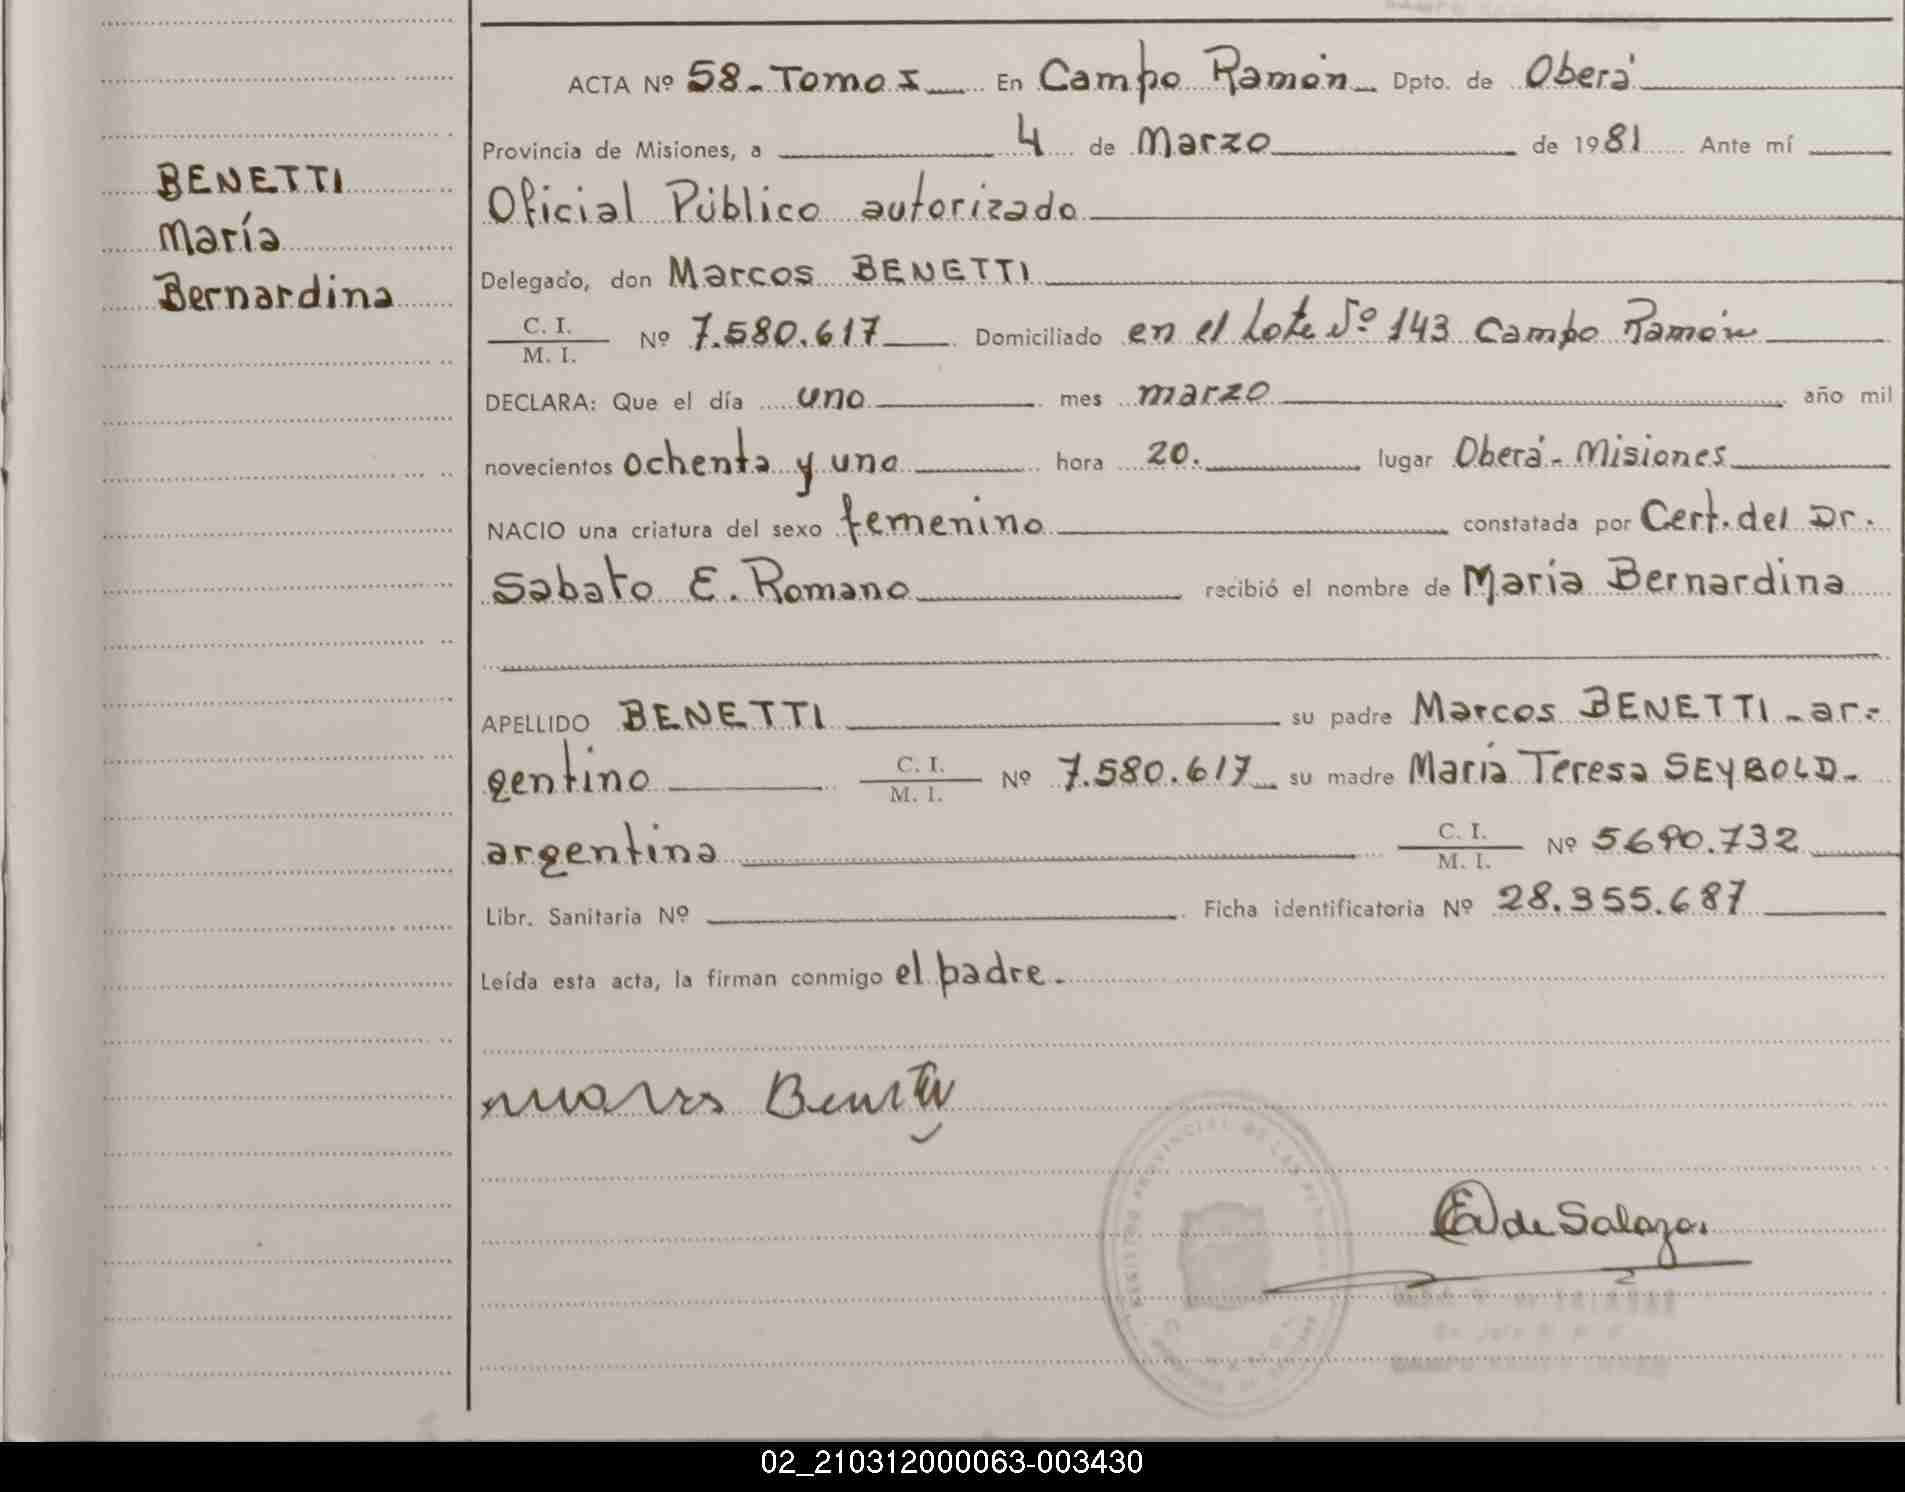 BENETTI
María
Bernardina
ACTA Nº 58-Tomo I En Campo Ramón Dpto. de Oberá
Provincia de Misiones, a 4 de Marzo de 1981 Ante mí
Oficial Público autorizado
Delegado, don Marcos BENETTI
C. I.
M. I.
Nº 7.580.617 Domiciliado en el Lote Nº 143 Campo Ramón
DECLARA: Que el día uno mes marzo año mil
novecientos ochenta y uno hora 20. lugar Oberá-Misiones
NACIO una criatura del sexo femenino constatada por Cert. del Dr.
Sabato E. Romano recibió el nombre de María Bernardina
APELLIDO BENETTI su padre Marcos BENETTI - ar-
gentino C. I. / M. I. Nº 7.580.617 su madre María Teresa SEYBOLD-
argentina C. I. / M. I. Nº 5.690.732
Libr. Sanitaria Nº Ficha identificatoria Nº 28.355.687
Leída esta acta, la firman conmigo el padre.
Marcos Benetti
de Salazar
REGISTRO PROVINCIAL DE LAS PERSONAS
02_210312000063-003430